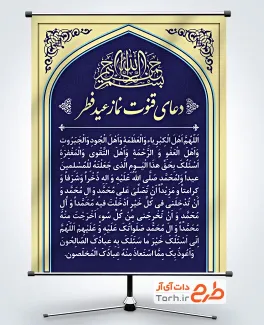 بسم الله الرحمن الرحیم
دعای قنوت نماز عید فطر
اللهُمَّ أَهْلَ الْكِبْرِياءِ وَالْعَظَمَةِ وَأَهْلَ الْجُودِ وَالْجَبَرُوتِ
وَأَهْلَ الْعَفْوِ وَ الرَّحْمَةِ وَأَهْلَ التَّقْوى وَالْمَغْفِرَةِ
أَسْئَلُكَ بِحَقِّ هذَا الْيَومِ الَّذى جَعَلْتَهُ لِلْمُسْلِمينَ
عيداً وَلِمُحَمَّدٍ صَلَّى اللهُ عَلَيْهِ وَ الِهِ ذُخْراً وَشَرَفاً وَ
كَرامَتاً وَ مَزيداً أَنْ تُصَلِّىَ عَلى مُحَمَّدٍ وَ الِ مُحَمَّدٍ وَ
أَنْ تُدْخِلَنى فى كُلِّ خَيْرٍ أَدْخَلْتَ فيهِ مُحَمَّداً وَ الَ
مُحَمَّدٍ وَ أَنْ تُخْرِجَنى مِنْ كُلِّ سُوءٍ أَخْرَجْتَ مِنْهُ
مُحَمَّداً وَ الَ مُحَمَّدٍ صَلَواتُكَ عَلَيْهِ وَ عَلَيْهِمْ اَللّهُمَّ
إِنّى أَسْئَلُكَ خَيْرَ ما سَئَلَكَ بِهِ عِبادُكَ الصّالِحُونَ
وَأَعُوذُ بِكَ مِمَّا اسْتَعاذَ مِنْهُ عِبادُكَ الْمُخْلَصُونَ.
طرح
دات آی‌آر
Tarh.ir